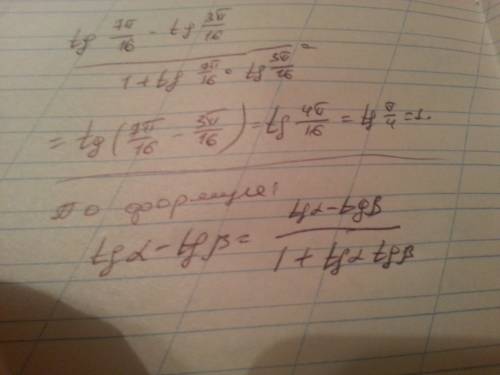 tg 7π/16 - tg 3π/16
1 + tg 7π/16 · tg 3π/16 =
= tg (7π/16 - 3π/16) = tg 4π/16 = tg π/4 = 1.
По формуле:
tgα - tgβ = tgα - tgβ / 1 + tgα tgβ